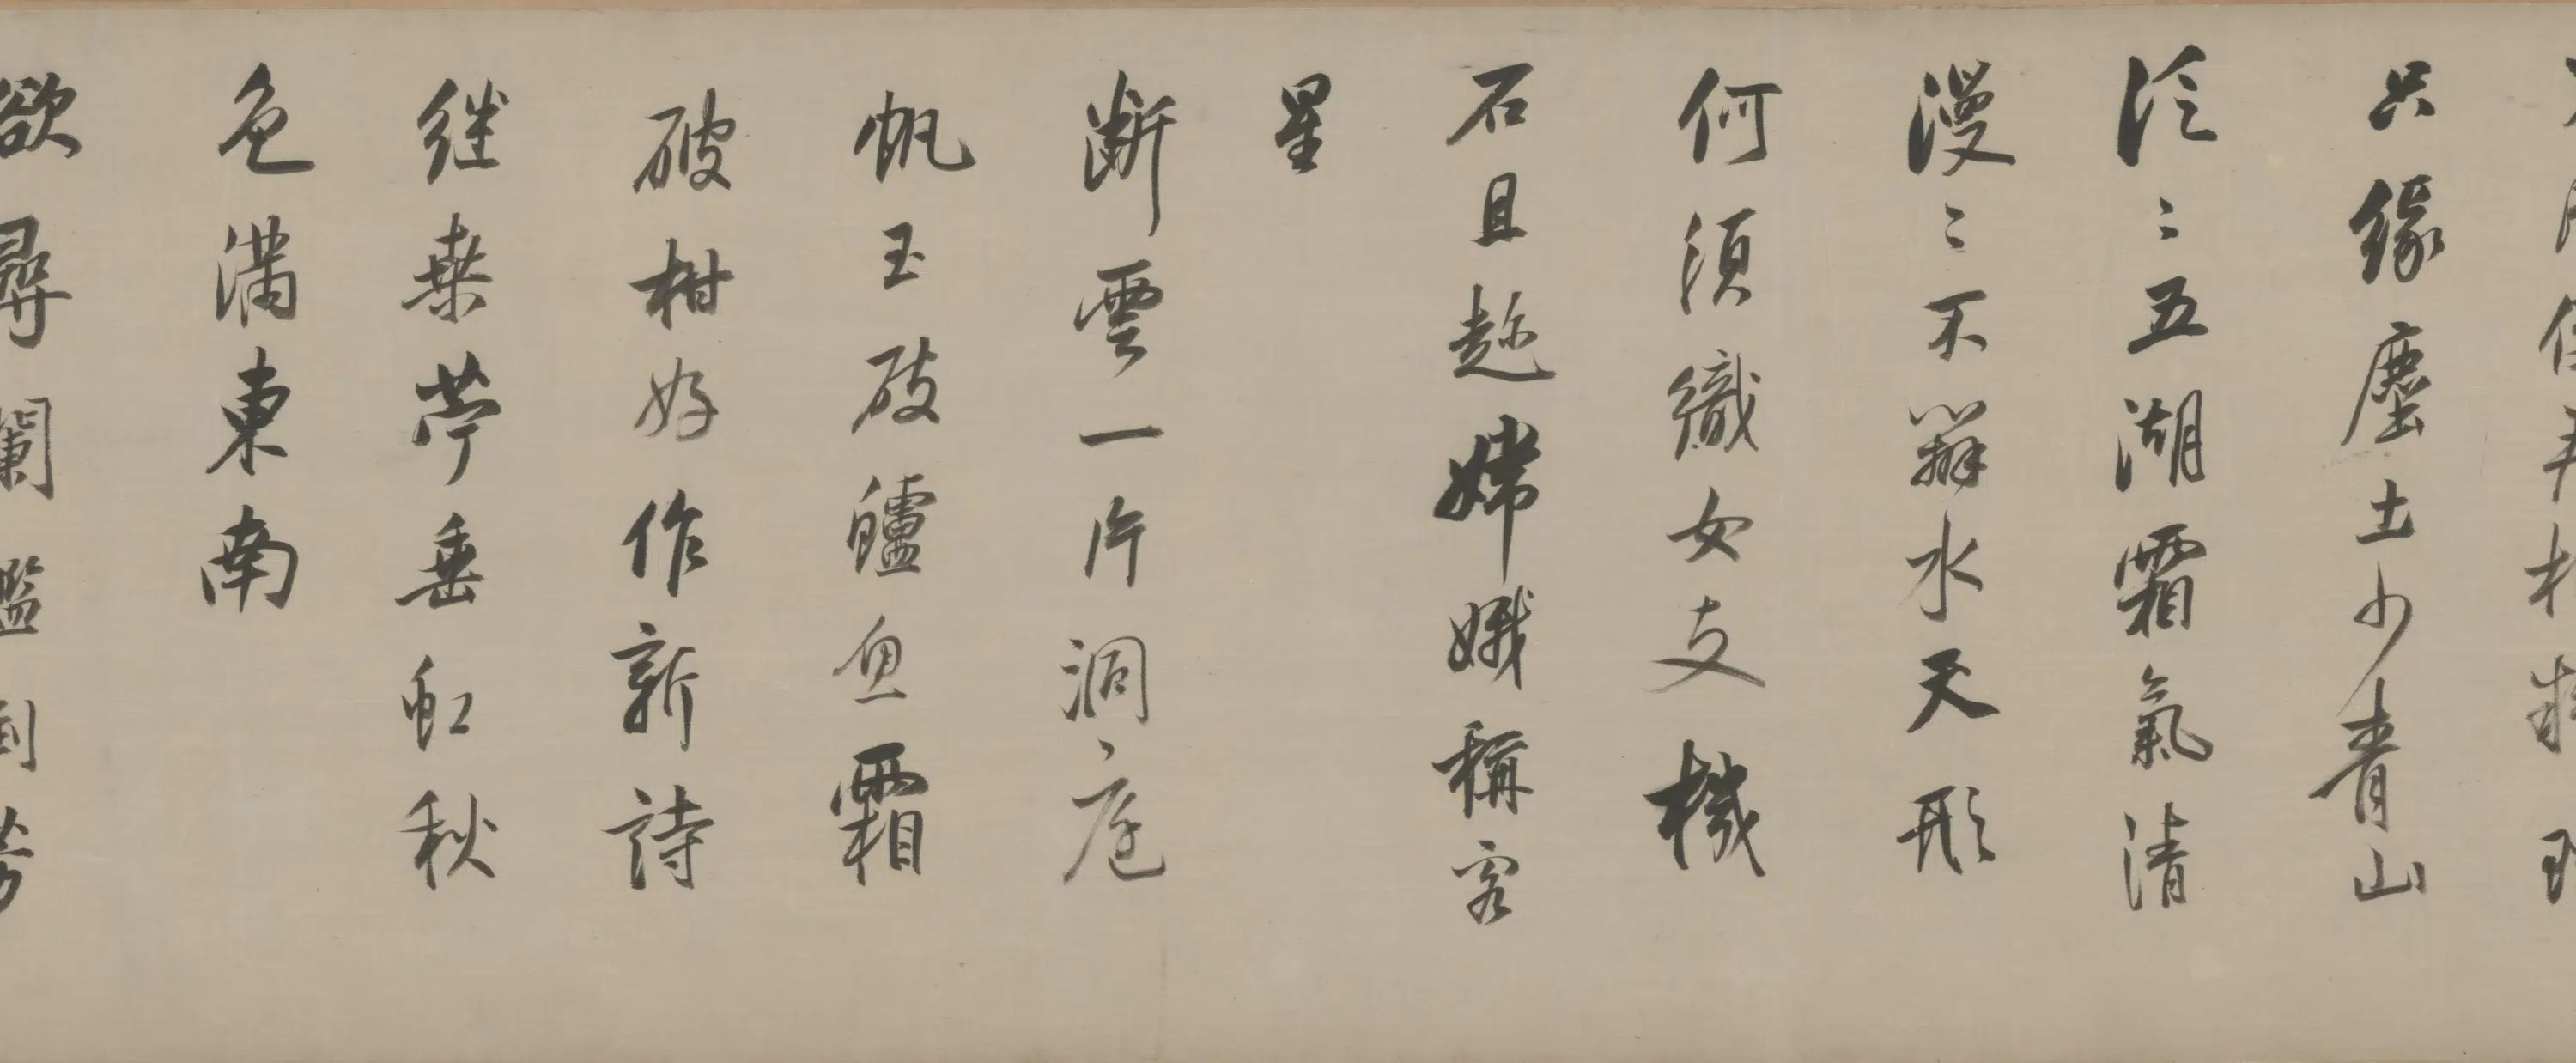 只緣塵土少青山
泛〻五湖霜氣清
漫〻不辨水天形
何須織女支機
石且趂嫦娥稱客
星
断雲一片洞庭
帆玉破鱸魚霜
破柑好作新詩
继桒苧垂虹秋
色滿東南
欲尋闌檻倒芳